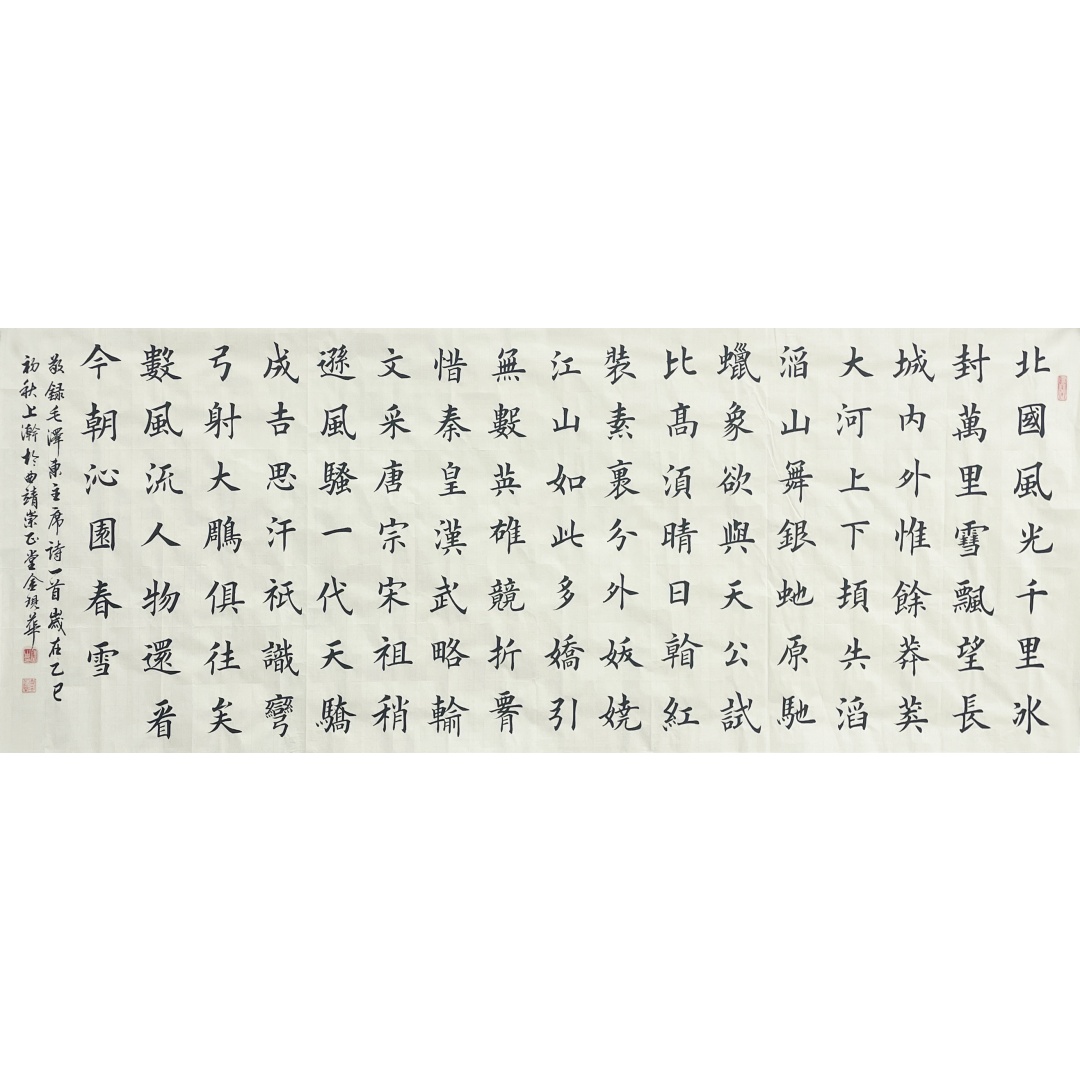 北國風光千里冰
封萬里雪飄望長
城内外惟餘莽莽
大河上下頓失滔
滔山舞銀虵原馳
蠟象欲與天公試
比髙須晴日看紅
裝素裹分外妖嬈
江山如此多嬌引
無數英雄競折腰
惜秦皇漢武略輸
文采唐宗宋祖稍
遜風騷一代天驕
成吉思汗衹識彎
弓射大鵰俱往矣
數風流人物還看
今朝沁園春雪
敬録毛澤東主席詩一首歲在乙巳
初秋上澣於曲靖崇正堂金琪華